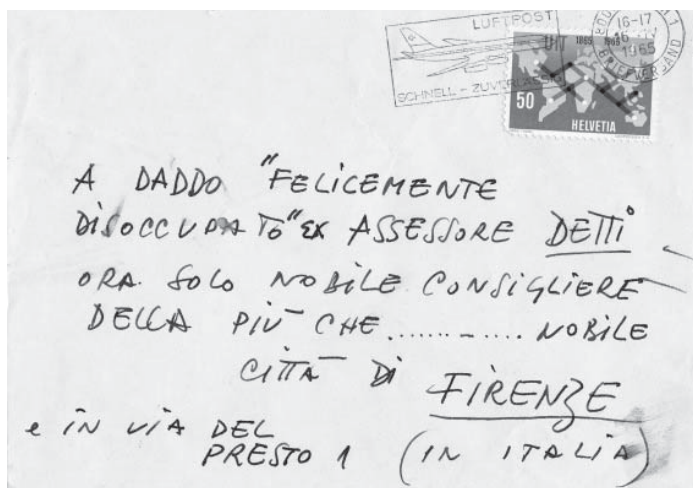 LUFTPOST
SCHNELL - ZUVERLÄSSIG
16-17
1965
BRIEFVERSAND
UIT 1865 1965
50
HELVETIA
A DADDO "FELICEMENTE
DISOCCUPATO" EX ASSESSORE DETTI
ORA SOLO NOBILE CONSIGLIERE
DELLA PIÙ CHE ........... NOBILE
CITTÀ DI FIRENZE
e IN VIA DEL
PRESTO 1 (IN ITALIA)